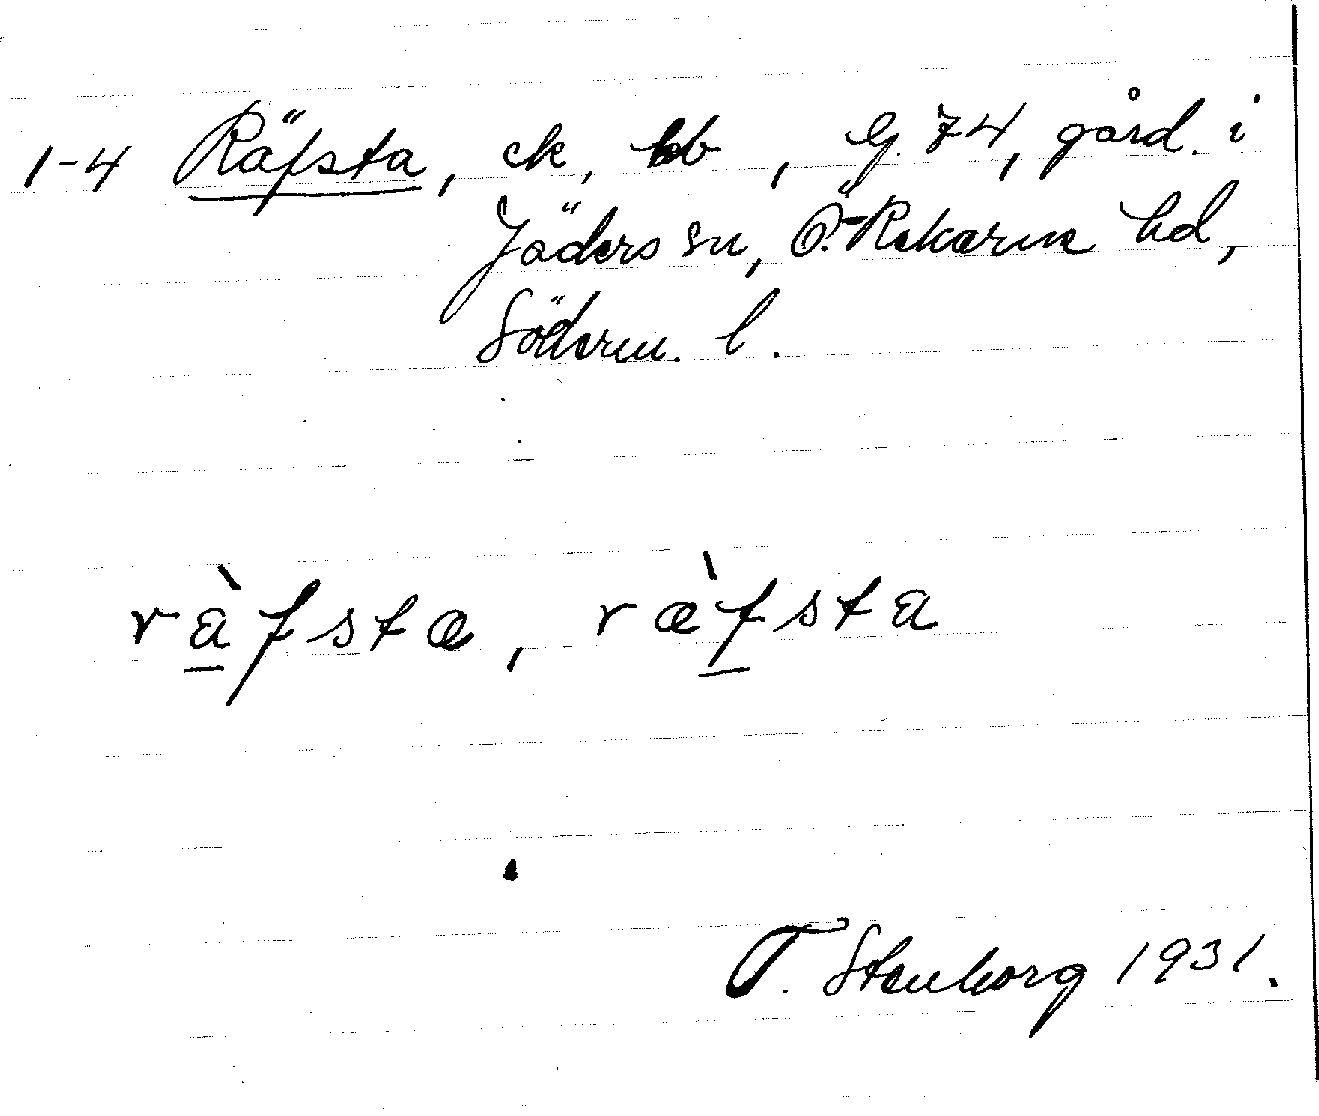 1-4 Räfsta, ek, kb, G. 74, gård i
Jäders sn, Ö. Rekarne hd,
Söderm. l.
ràfsta, ræ̀fsta
T. Stenborg 1931.